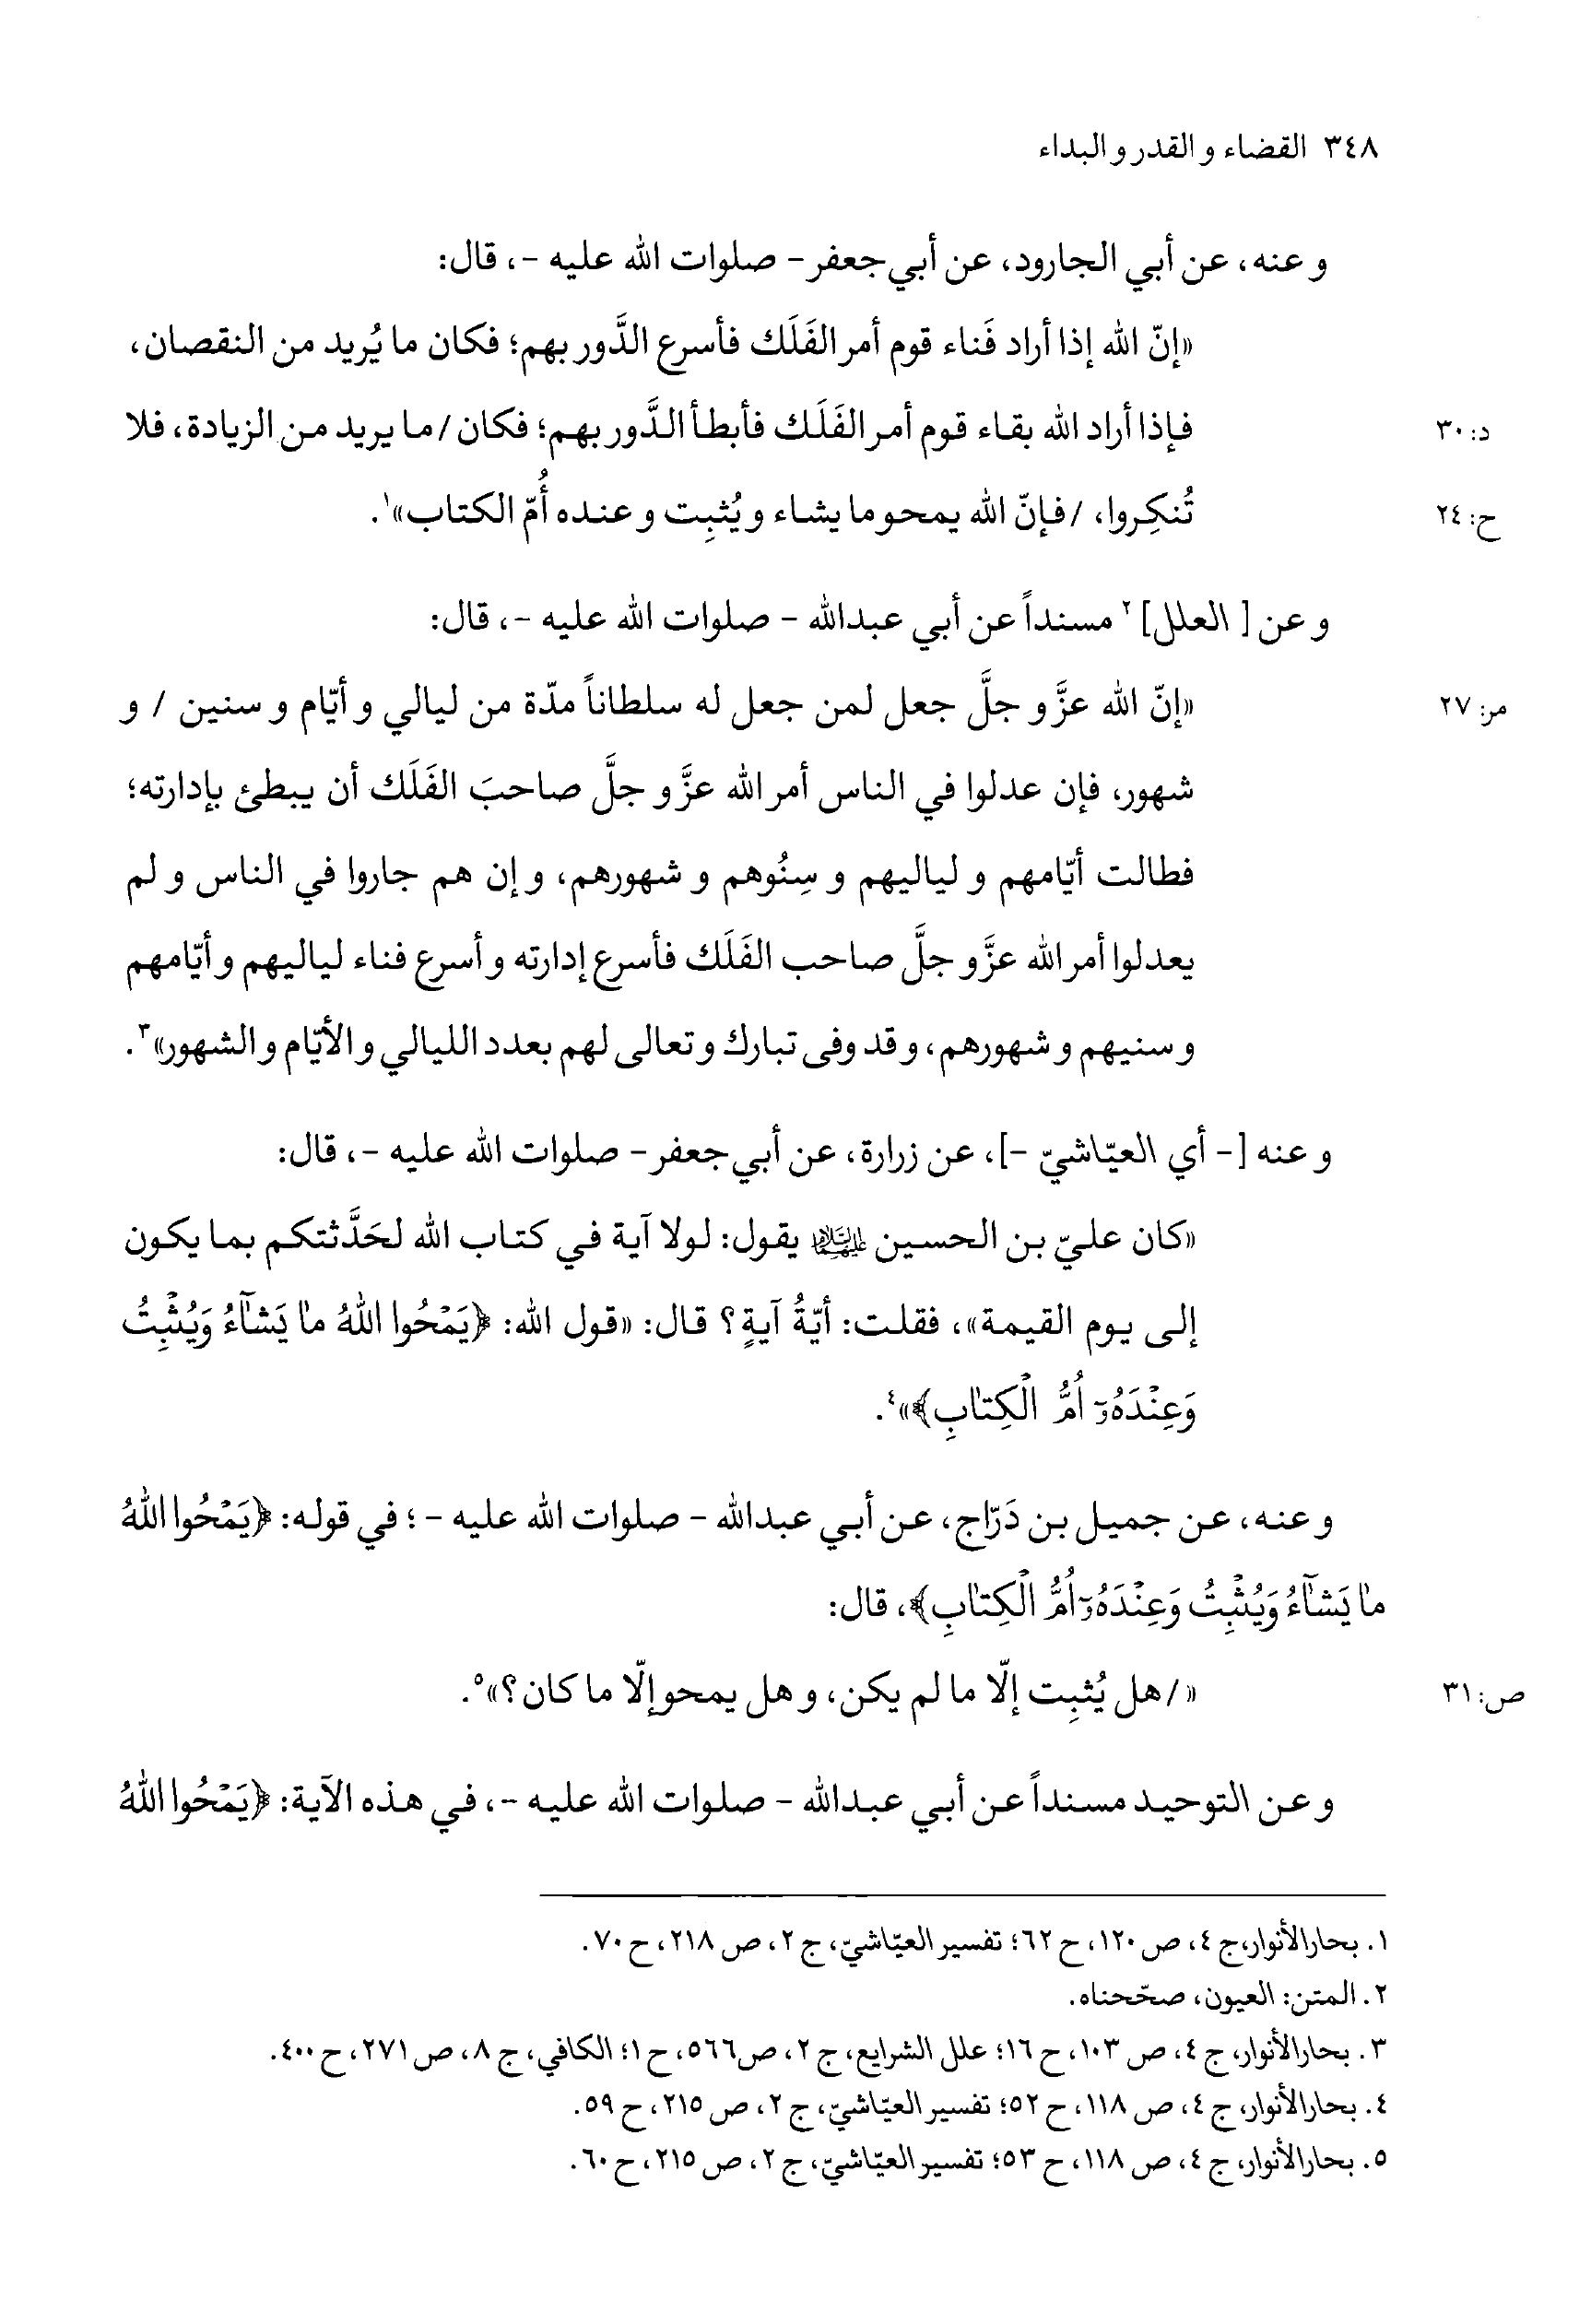 ٣٤٨ القضاء و القدر و البداء
و عنه، عن أبي الجارود، عن أبي‌جعفر – صلوات الله عليه –، قال:
«إنّ الله إذا أراد فَناء قوم أمر الفَلَك فأسرع الدَّور بهم؛ فكان ما يُريد من النقصان،
فإذا أراد الله بقاء قوم أمر الفَلَك فأبطأ الدَّور بهم؛ فكان / ما يريد من الزيادة، فلا
د: ٣٠
تُنكِروا، / فإنّ الله يمحو ما يشاء و يُثبِت و عنده أُمّ الكتاب»١.
ح: ٢٤
و عن [ العلل] ٢ مسنداً عن أبي عبدالله – صلوات الله عليه –، قال:
«إنّ الله عزَّ و جلَّ جعل لمن جعل له سلطاناً مدّة من ليالي و أيّام و سنين / و
مر: ٢٧
شهور، فإن عدلوا في الناس أمر الله عزَّ و جلَّ صاحبَ الفَلَك أن يبطئ بإدارته؛
فطالت أيّامهم و لياليهم و سِنُوهم و شهورهم، و إن هم جاروا في الناس و لم
يعدلوا أمر الله عزَّ و جلَّ صاحب الفَلَك فأسرع إدارته و أسرع فناء لياليهم و أيّامهم
و سنيهم و شهورهم، و قد وفى تبارك و تعالى لهم بعدد الليالي و الأيّام و الشهور»٣.
و عنه [– أي العيّاشيّ –]، عن زرارة، عن أبي‌جعفر – صلوات الله عليه –، قال:
«كان عليّ بن الحسين عليهما السلام يقول: لولا آية في كتاب الله لحَدَّثتكم بما يكون
إلى يوم القيمة»، فقلت: أيّةُ آيةٍ؟ قال: «قول الله: ﴿يَمْحُوا اللهُ ما يَشآءُ وَيُثْبِتُ
وَعِنْدَهُٓ اُمُّ الْكِتابِ﴾»٤.
و عنه، عن جميل بن دَرّاج، عن أبي عبدالله – صلوات الله عليه –؛ في قوله: ﴿يَمْحُوا اللهُ
ما يَشآءُ وَيُثْبِتُ وَعِنْدَهُٓ اُمُّ الْكِتابِ﴾، قال:
«/ هل يُثبِت إلّا ما لم يكن، و هل يمحو إلّا ما كان؟»٥.
ص: ٣١
و عن التوحيد مسنداً عن أبي عبدالله – صلوات الله عليه –، في هذه الآية: ﴿يَمْحُوا اللهُ
١. بحار الأنوار، ج ٤، ص ١٢٠، ح ٦٢؛ تفسير العيّاشيّ، ج ٢، ص ٢١٨، ح ٧٠.
٢. المتن: العيون، صحّحناه.
٣. بحار الأنوار، ج ٤، ص ١٠٣، ح ١٦؛ علل الشرايع، ج ٢، ص ٥٦٦، ح ١؛ الكافي، ج ٨، ص ٢٧١، ح ٤٠٠.
٤. بحار الأنوار، ج ٤، ص ١١٨، ح ٥٢؛ تفسير العيّاشيّ، ج ٢، ص ٢١٥، ح ٥٩.
٥. بحار الأنوار، ج ٤، ص ١١٨، ح ٥٣؛ تفسير العيّاشيّ، ج ٢، ص ٢١٥، ح ٦٠.